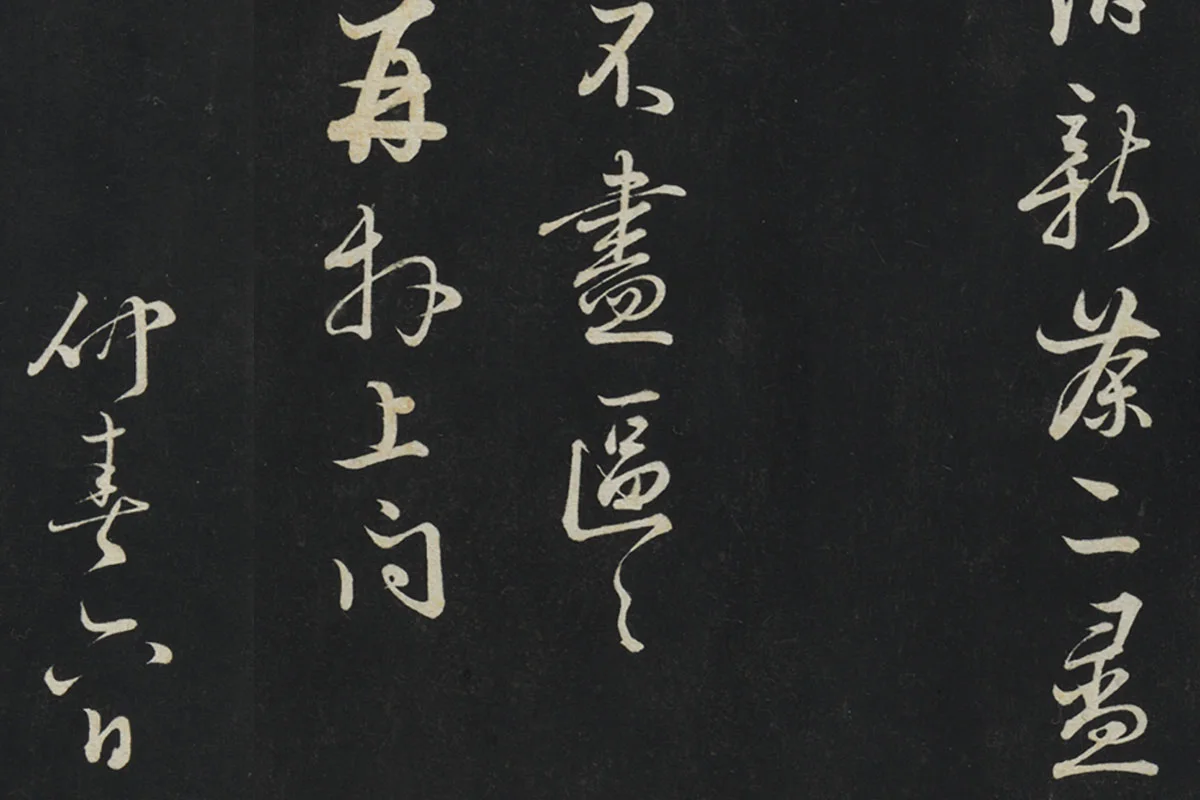 新茶二盝
不盡區々
再拜上問
仲春六日